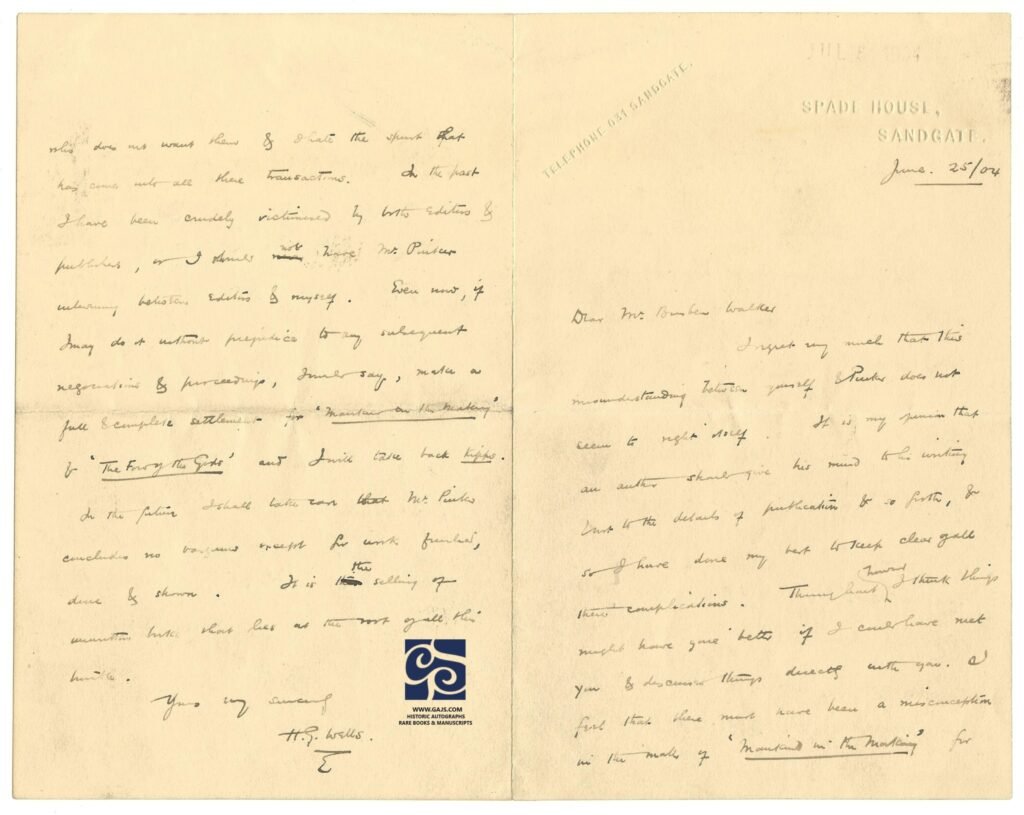 TELEPHONE 021 SANDGATE.
SPADE HOUSE,
SANDGATE.
June. 25/04
Dear Mr. Walker
I regret very much that this
misunderstanding between yourself & Pinker does not
seem to right itself. It is my opinion that
an author should give his mind to his writing
& not to the details of publication & so forth, &
so I have done my best to keep clear of all
these complications. Throughout however I think things
might have gone better if I could have met
you & discussed things directly with you. I
feel that there must have been a misconception
in the matter of "Mankind in the Making" for
who does not want them & I hate the spirit that
has come into all these transactions. In the past
I have been crudely victimised by both Editors &
publishers, or I should not have Mr. Pinker
intervening between Editors & myself. Even now, if
I may do it without prejudice to any subsequent
negociations & proceedings, I would say, make a
full & complete settlement for "Mankind in the Making"
& "The Food of the Gods" and I will take back Kipps.
In the future I shall take care that Mr. Pinker
concludes no bargains except for work finished,
done & shown. It is the selling of
unwritten books that lies at the root of all this
trouble.
Yours very sincerely
H.G. Wells.
WWW.GAJS.COM
HISTORIC AUTOGRAPHS
RARE BOOKS & MANUSCRIPTS